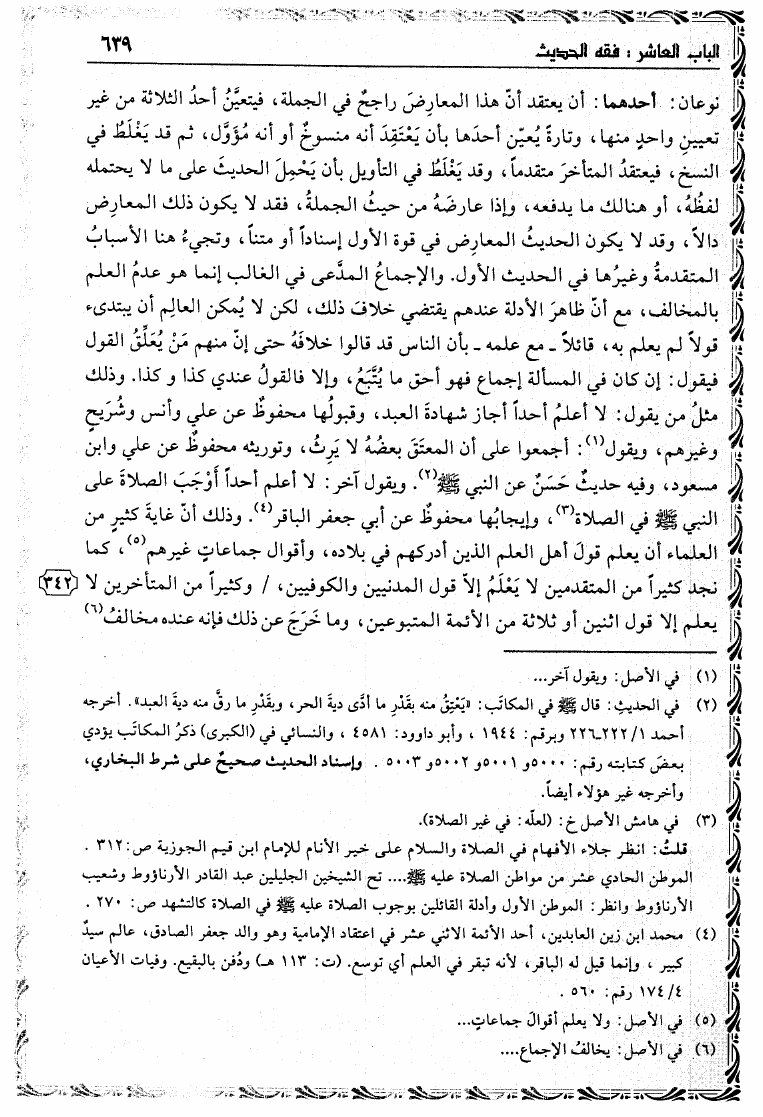 الباب العاشر : فقه الحديث
٦٣٩
نوعان: أحدهما: أن يعتقد أنّ هذا المعارِضَ راجحٌ في الجملة، فيتعيَّنُ أحدُ الثلاثة من غير
تعيينِ واحدٍ منها، وتارةً يُعيّن أحدَها بأن يَعْتَقِدَ أنه منسوخٌ أو أنه مُؤَوَّل، ثم قد يَغْلَطُ في
النسخ، فيعتقدُ المتأخرَ متقدماً، وقد يَغْلَطُ في التأويل بأن يَحْمِلَ الحديثَ على ما لا يحتمله
لفظُهُ، أو هنالك ما يدفعه، وإذا عارضَهُ من حيثُ الجملةُ، فقد لا يكون ذلك المعارِض
دالاً، وقد لا يكون الحديثُ المعارِض في قوة الأول إسناداً أو متناً، وتجيءُ هنا الأسبابُ
المتقدمةُ وغيرُها في الحديث الأول. والإجماعُ المدَّعى في الغالب إنما هو عدمُ العلم
بالمخالف، مع أنّ ظاهرَ الأدلة عندهم يقتضي خلافَ ذلك، لكن لا يُمكن العالِم أن يبتدىء
قولاً لم يعلم به، قائلاً ـ مع علمه ـ بأن الناس قد قالوا خلافَهُ حتى إنّ منهم مَنْ يُعَلِّقُ القول
فيقول: إن كان في المسألة إجماع فهو أحق ما يُتَّبَعُ، وإلا فالقولُ عندي كذا و كذا. وذلك
مثلُ من يقول: لا أعلمُ أحداً أجاز شهادةَ العبد، وقبولُها محفوظٌ عن علي وأنس وشُرَيحٍ
وغيرهم، ويقول(١): أجمعوا على أن المعتَقَ بعضُهُ لا يَرِثُ، وتوريثه محفوظٌ عن علي وابن
مسعود، وفيه حديثٌ حَسَنٌ عن النبي ﷺ(٢). ويقول آخر: لا أعلم أحداً أَوْجَبَ الصلاةَ على
النبي ﷺ في الصلاة(٣)، وإيجابُها محفوظٌ عن أبي جعفر الباقر(٤). وذلك أنّ غايةَ كثيرٍ من
العلماء أن يعلم قولَ أهل العلم الذين أدركهم في بلاده، وأقوال جماعاتٍ غيرهم(٥)، كما
نجد كثيراً من المتقدمين لا يَعْلَمُ إلاّ قول المدنيين والكوفيين، / وكثيراً من المتأخرين لا
٣٤٢
يعلم إلا قول اثنين أو ثلاثة من الأئمة المتبوعين، وما خَرَجَ عن ذلك فإنه عنده مخالفُ(٦)
(١) في الأصل: ويقول آخر...
(٢) في الحديثِ: قال ﷺ في المكاتَب: «يَعْتِقُ منه بقَدْرِ ما أدَّى ديةَ الحر، وبقَدْرِ ما رقَّ منه ديةَ العبد». أخرجه
أحمد ١/ ٢٢٢ـ٢٢٦ وبرقم: ١٩٤٤ ، وأبو داوود: ٤٥٨١ ، والنسائي في (الكبرى) ذكرُ المكاتَب يؤدي
بعضَ كتابته رقم: ٥٠٠٠و ٥٠٠١و ٥٠٠٢و ٥٠٠٣ . وإسناد الحديث صحيحٌ على شرط البخاري،
وأخرجه غير هؤلاء أيضاً.
(٣) في هامش الأصل خ: (لعلّه: في غير الصلاة).
قلتُ: انظر جلاء الأفهام في الصلاة والسلام على خير الأنام للإمام ابن قيم الجوزية ص:٣١٢ .
الموطن الحادي عشر من مواطن الصلاة عليه ﷺ.... تح الشيخين الجليلين عبد القادر الأرناؤوط وشعيب
الأرناؤوط وانظر: الموطن الأول وأدلة القائلين بوجوب الصلاة عليه ﷺ في الصلاة كالتشهد ص: ٢٧٠ .
(٤) محمد ابن زين العابدين، أحد الأئمة الاثني عشر في اعتقاد الإمامية وهو والد جعفر الصادق، عالم سيدٌ
كبير ، وإنما قيل له الباقر، لأنه تبقر في العلم أي توسع. (ت: ١١٣ هـ) ودُفن بالبقيع. وفيات الأعيان
٤/ ١٧٤ رقم: ٥٦٠ .
(٥) في الأصل: ولا يعلم أقوالَ جماعاتٍ...
(٦) في الأصل: يخالفُ الإجماع....